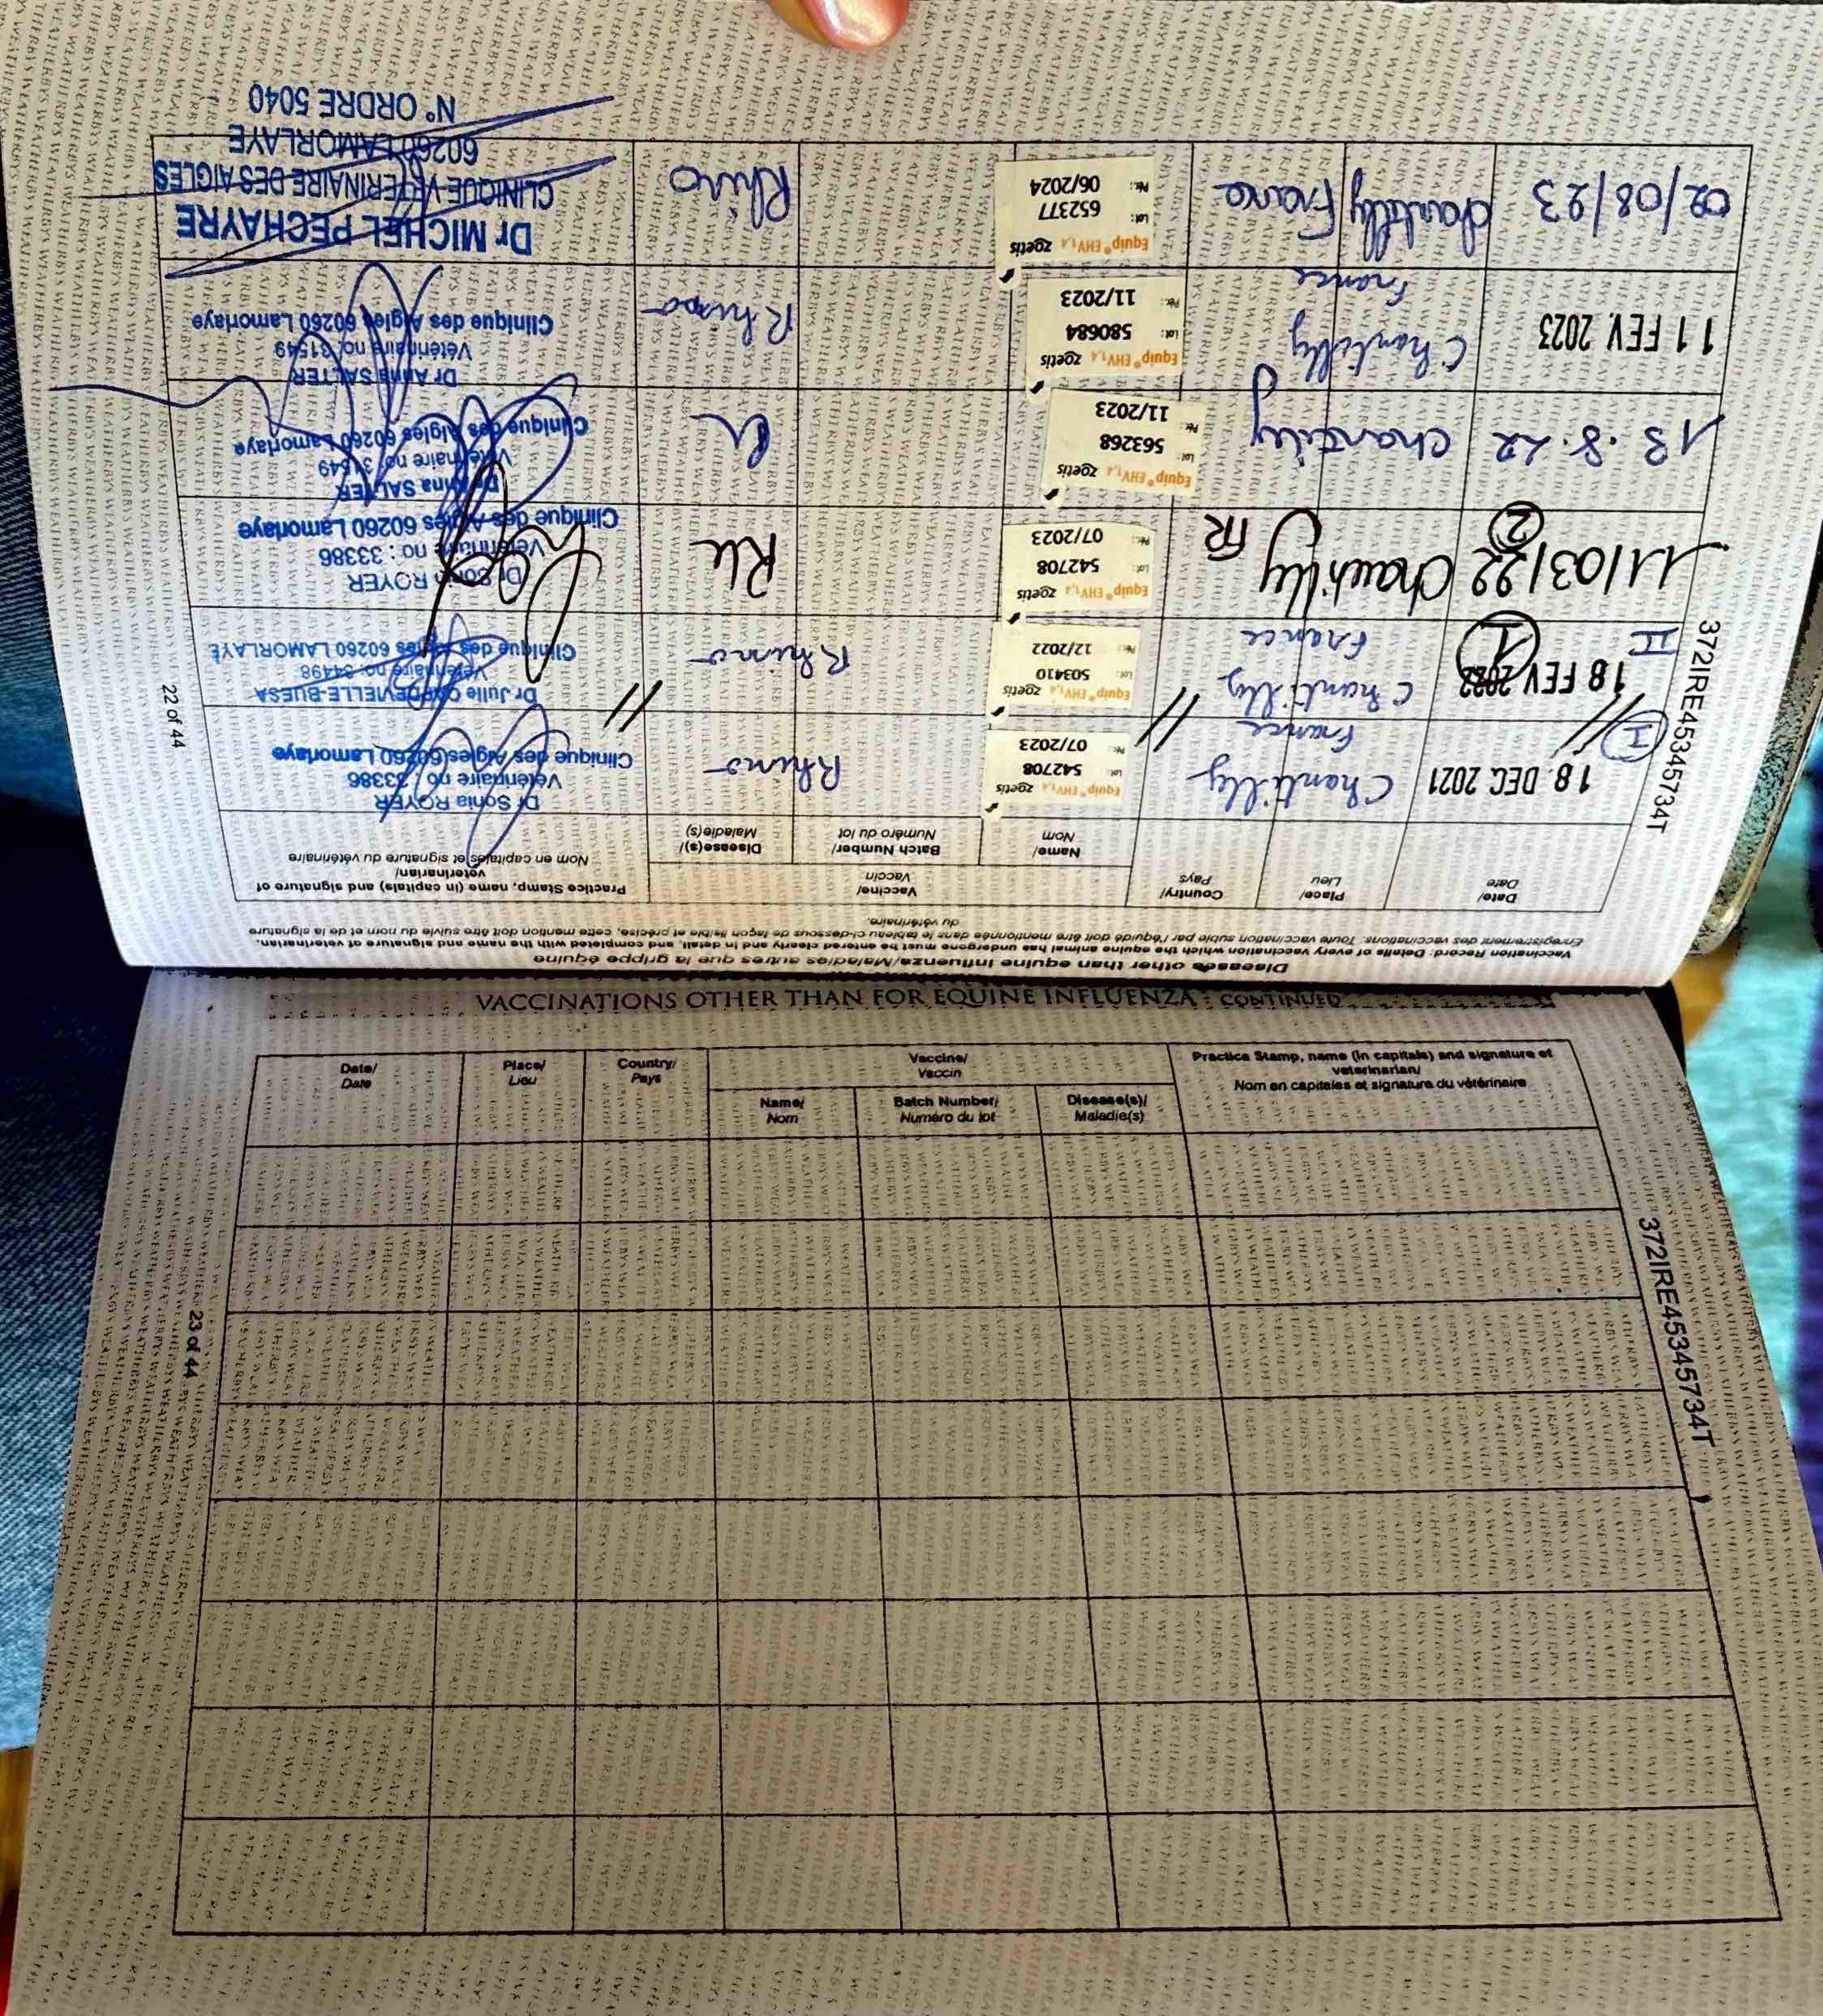 Diseases other than equine influenza/Maladies autres que la grippe équine
Vaccination Record: Details of every vaccination which the equine animal has undergone must be entered clearly and in detail, and completed with the name and signature of veterinarian.
Enregistrement des vaccinations: Toute vaccination subie par l'équidé doit être mentionnée dans le tableau ci-dessous de façon lisible et précise, cette mention doit être suivie du nom et de la signature
du vétérinaire.
Date/
Date
Place/
Lieu
Country/
Pays
Vaccine/
Vaccin
Name/
Nom
Batch Number/
Numéro du lot
Disease(s)/
Maladie(s)
Practice Stamp, name (in capitals) and signature of
veterinarian/
Nom en capitales et signature du vétérinaire
I
18 DEC. 2021
Chantilly
France
Equip® EHV1,4 zoetis
Lot: 542708
Pér.: 07/2023
Rhino
Dr Sonia ROYER
Vétérinaire no : 33386
Clinique des Aigles 60260 Lamorlaye
II
18 FEV 2022
1
Chantilly
France
Equip® EHV1,4 zoetis
Lot: 503410
Pér.: 12/2022
Rhino
Dr Julie CAPDEVIELLE-BUESA
Vétérinaire no: 34498
Clinique des Aigles 60260 LAMORLAYE
11/03/22
2
Chantilly
FR
Equip® EHV1,4 zoetis
Lot: 542708
Pér.: 07/2023
Rh
Dr Sonia ROYER
Vétérinaire no : 33386
Clinique des Aigles 60260 Lamorlaye
13.8.22
Chantilly
Equip® EHV1,4 zoetis
Lot: 563268
Pér.: 11/2023
Dr Anna SALTER
Vétérinaire no: 31549
Clinique des Aigles 60260 Lamorlaye
11 FEV. 2023
Chantilly
France
Equip® EHV1,4 zoetis
Lot: 580684
Pér.: 11/2023
Rhino
Dr Anna SALTER
Vétérinaire no: 31549
Clinique des Aigles 60260 Lamorlaye
02/08/23
Chantilly France
Equip® EHV1,4 zoetis
Lot: 652377
Pér.: 06/2024
Rhino
Dr MICHEL PECHAYRE
CLINIQUE VETERINAIRE DES AIGLES
60260 LAMORLAYE
N° ORDRE 5040
372IRE45345734T
22 of 44
VACCINATIONS OTHER THAN FOR EQUINE INFLUENZA - CONTINUED
Date/
Date
Place/
Lieu
Country/
Pays
Vaccine/
Vaccin
Name/
Nom
Batch Number/
Numéro du lot
Disease(s)/
Maladie(s)
Practice Stamp, name (in capitals) and signature of
veterinarian/
Nom en capitales et signature du vétérinaire
372IRE45345734T
23 of 44